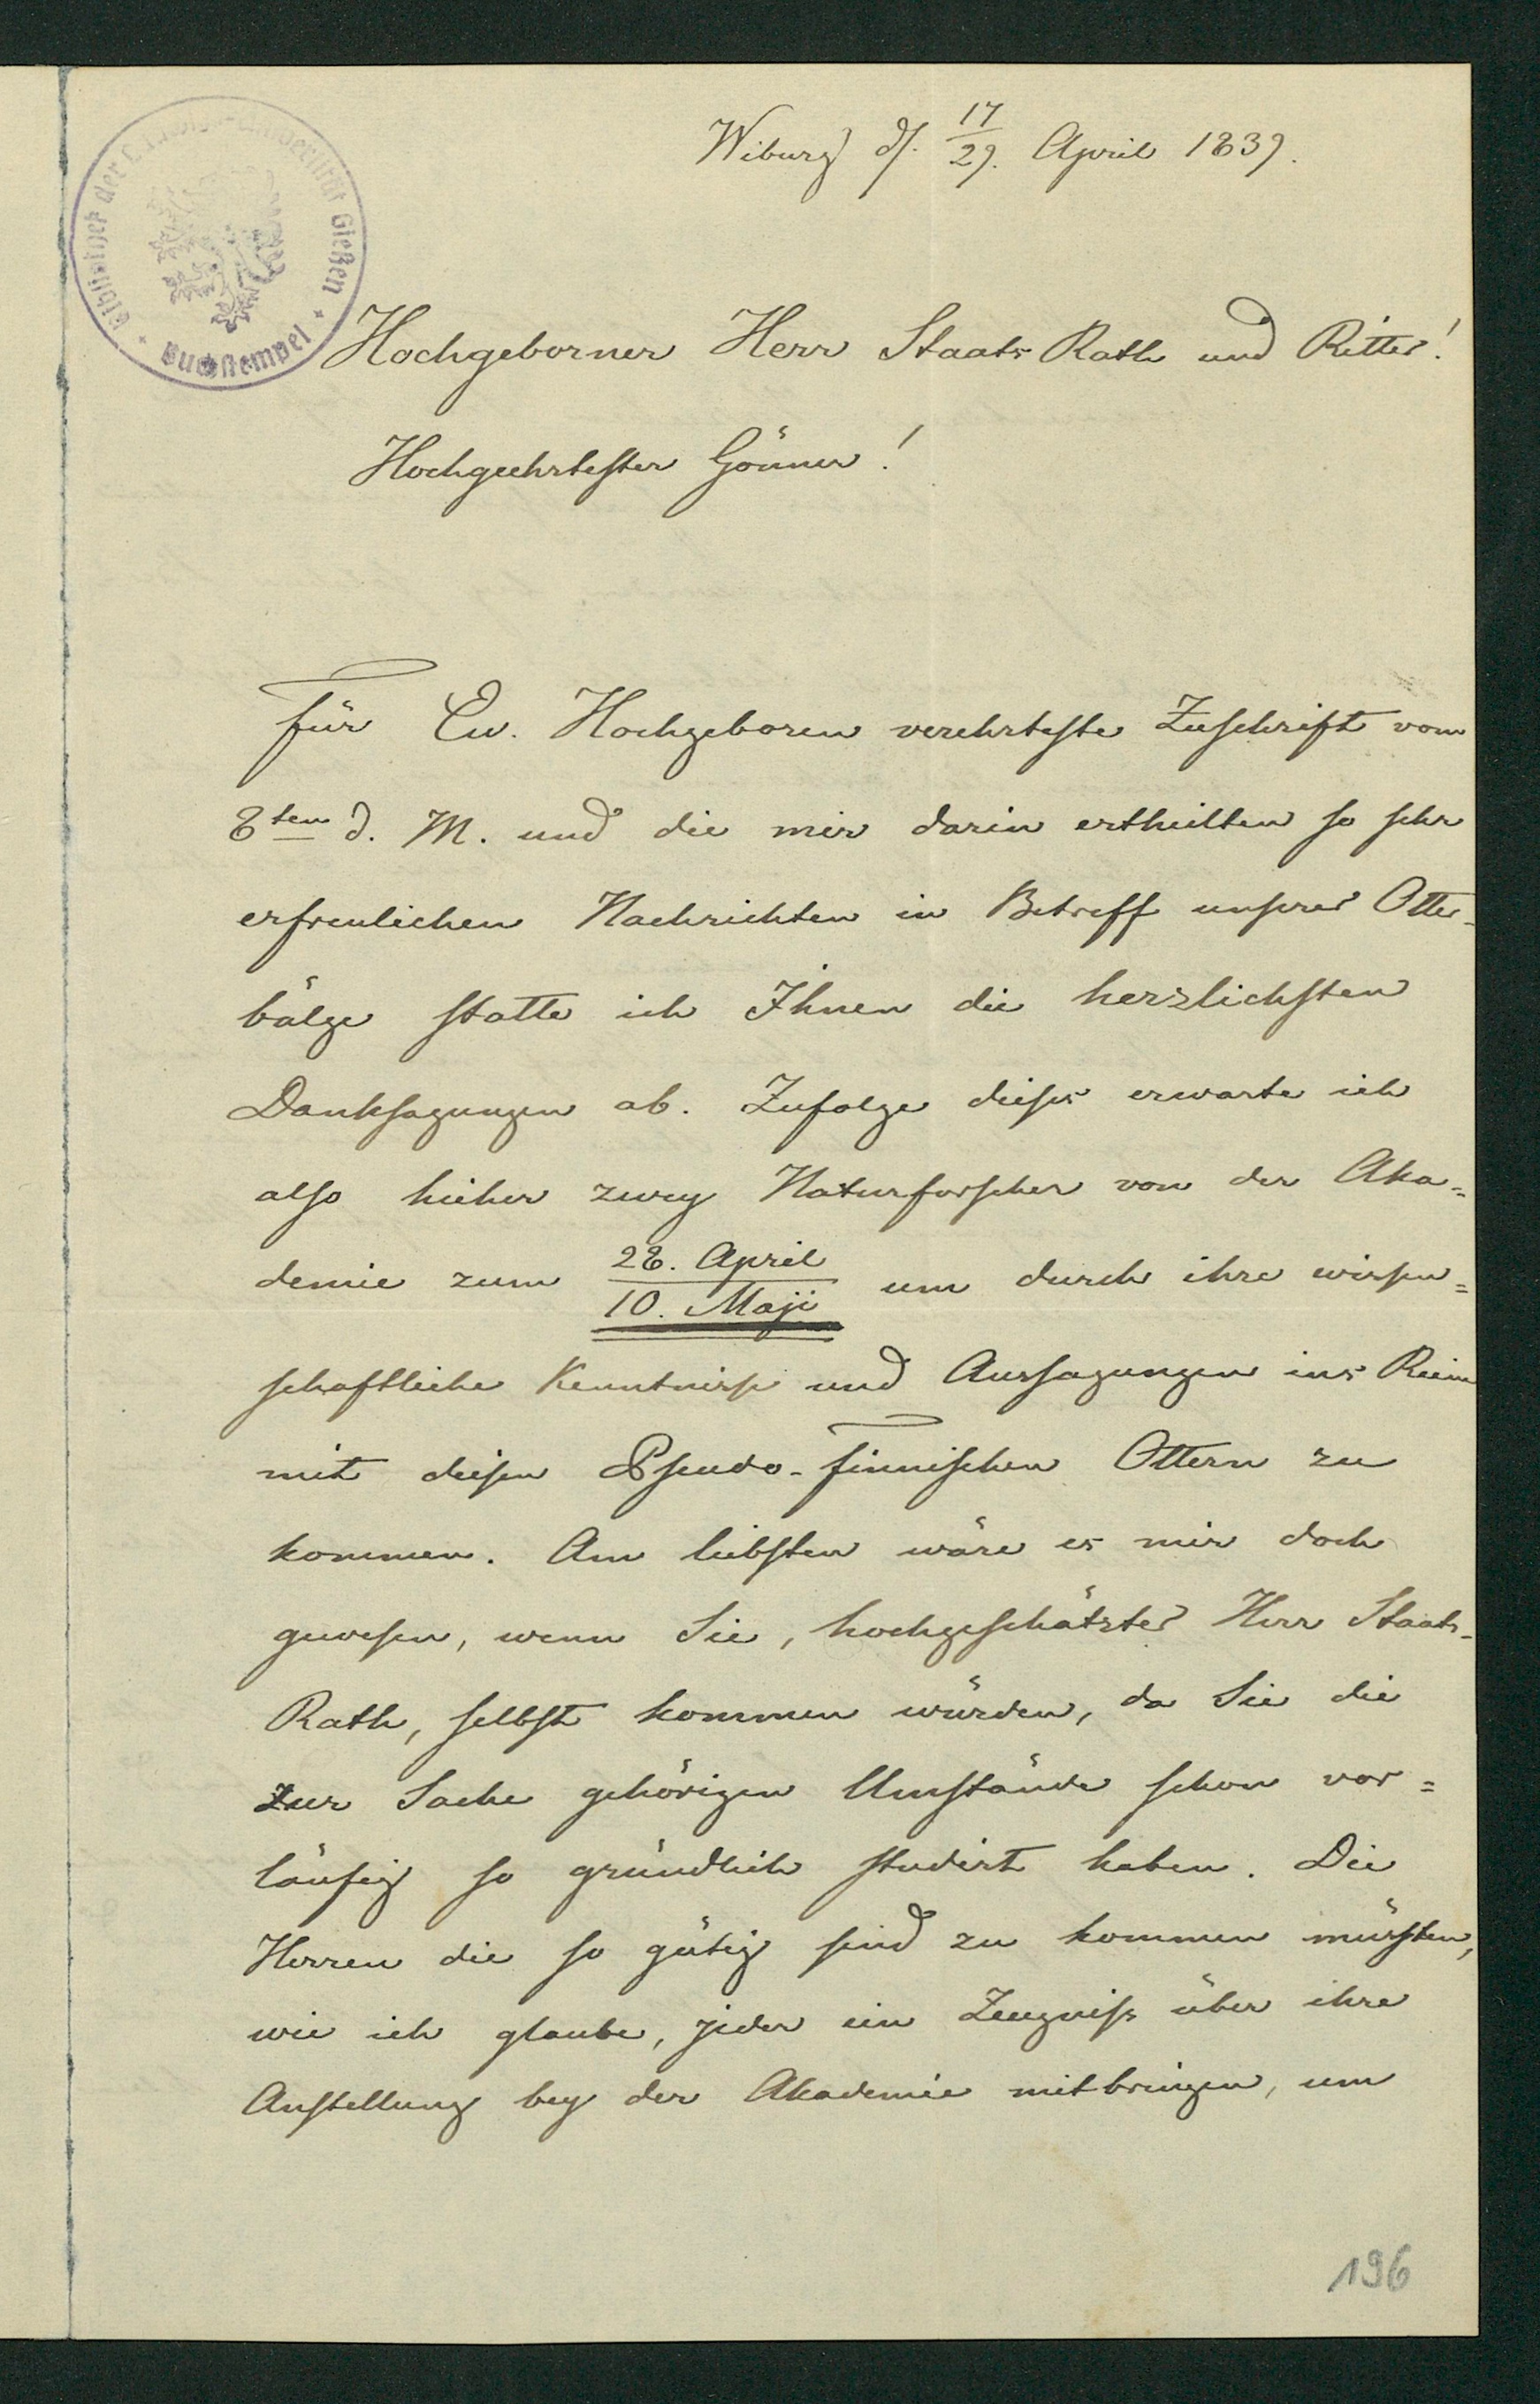 Wiburg d. 17/29. April 1839.
Bibliothek der Universität Gießen
Buchstempel
Hochgeborner Herr Staats Rath und Ritter!
Hochgeehrtester Gönner!
Für Ew. Hochgeboren verehrteste Zuschrift vom
8ten d. M. und die mir darin ertheilten so sehr
erfreulichen Nachrichten in Betreff unsrer Otter-
bälge statte ich Ihnen die herzlichsten
Danksagungen ab. Zufolge dieses erwarte ich
also hieher zwey Naturforscher von der Aka=
demie zum 28. April/10. Maji um durch ihre wissen=
schaftliche Kenntnisse und Aussagungen ins Reine
mit diesen Pseudo-Finnischen Ottern zu
kommen. Am liebsten wäre es mir doch
gewesen, wenn Sie, hochgeschätzter Herr Staats-
Rath, selbst kommen würden, da Sie die
zur Sache gehörigen Umstände schon vor=
läufig so gründlich studirt haben. Die
Herren die so gütig sind zu kommen müssten,
wie ich glaube, jeder ein Zeugniss über ihre
Anstellung bey der Akademie mitbringen, um
196